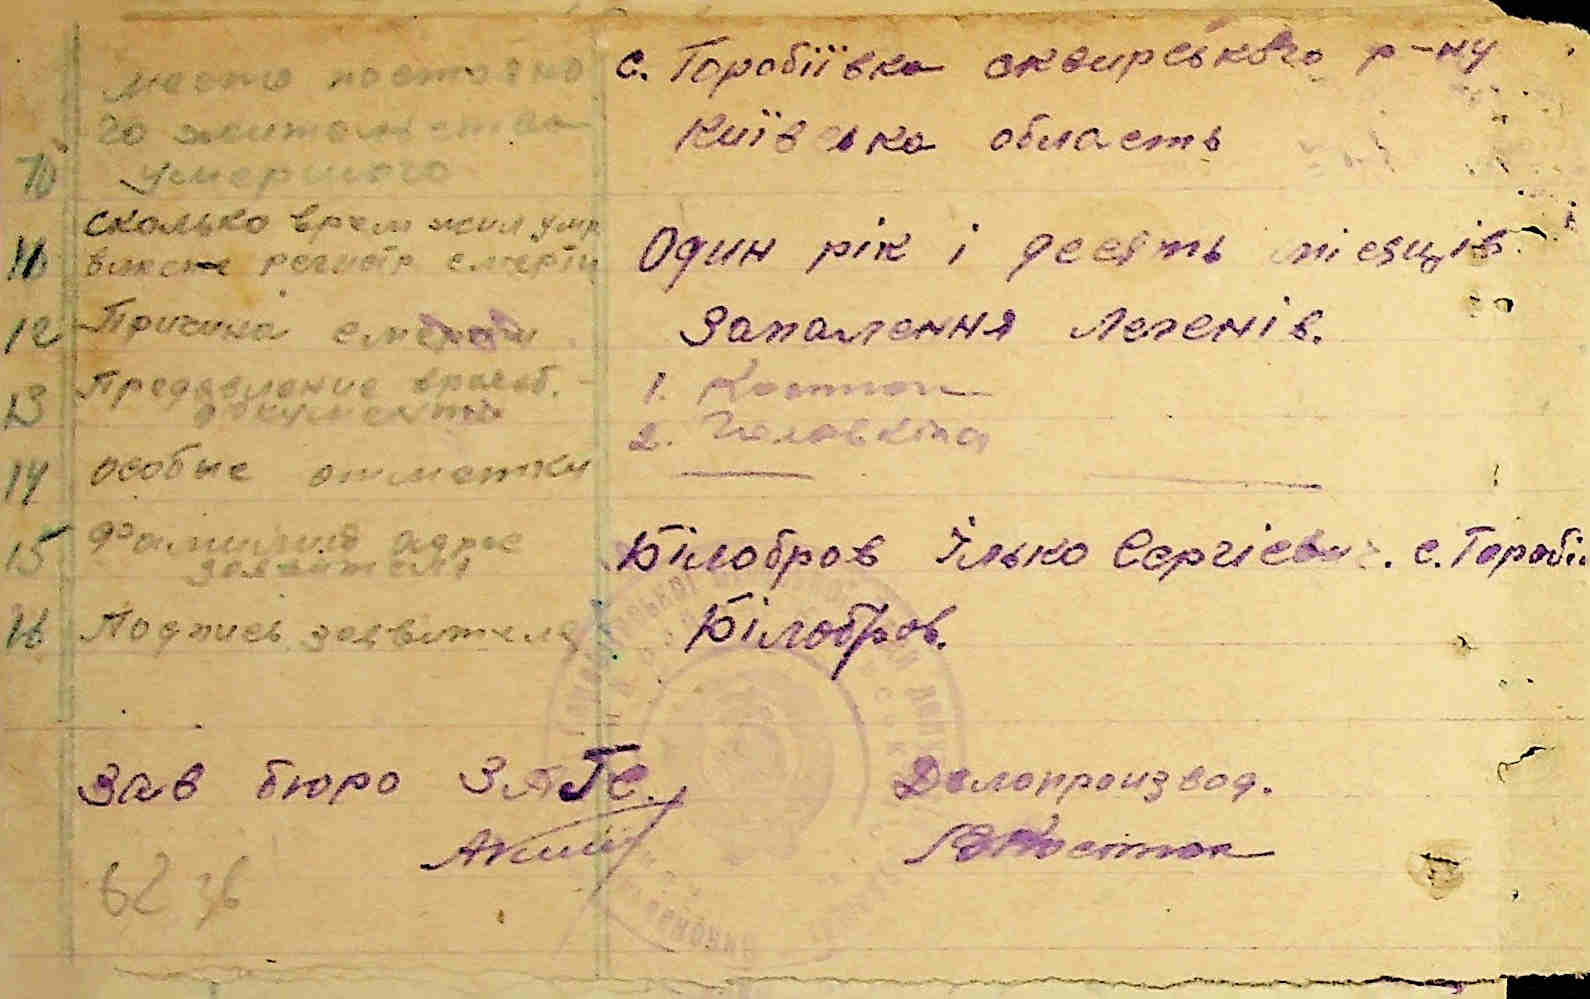 место постояно
го жительства
10 умершого
с. Торобіївка сквирського р-ну
Київська область
сколько врем жил умр
11 в месте регистр смерти
Один рік і десять місяців.
12 Причина смерти
Запалення легенів.
13 Предявление врачеб.
документы
1. Костюк
2. Головкіна
14 особые отметки
15 Фамилия адрес
заявителя
Білобров Ілько Сергієвич. с. Торобі
16 Подпись заявителя
Білобров.
Зав бюро ЗАГС.
Делопроизвод.
Костюк